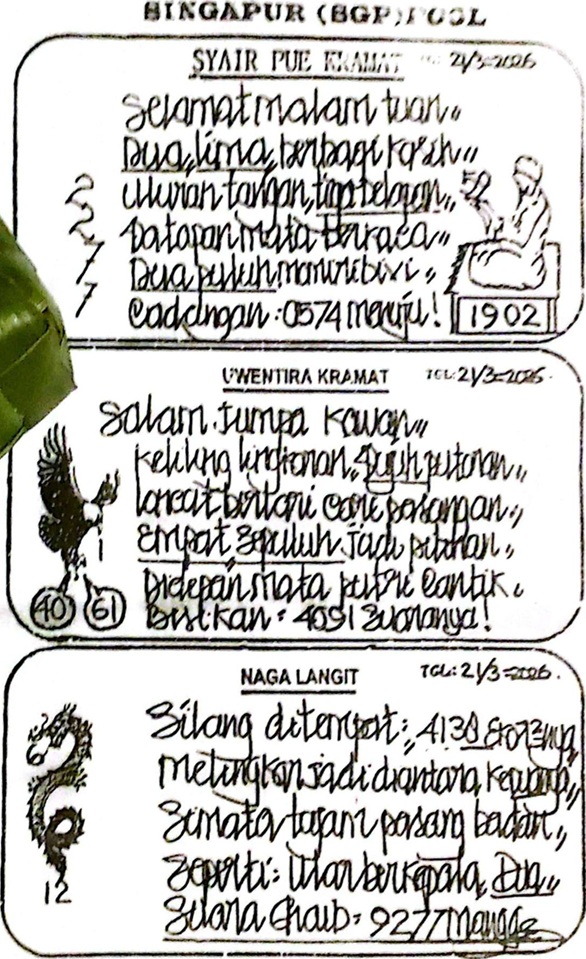 SINGAPUR (SGP) POOL
SYAIR PUE KRAMAT 21/3=2026
Selamat malam tuan,,
Dua,, lima,, berbagi kasih,,
Uluran tangan, tiga belasan,,
Tatapan mata berkaca,,
Dua puluh,
Cadangan : 0574 menuju!
2
2
7
7
50
1902
UWENTIRA KRAMAT TGL: 21/3=2026.
Salam jumpa kawan,,
Keliling lingkaran,, Tujuh putaran,,
Loncat bertari cari pasangan,,
Empat, Sepuluh jadi pilihan,,
Didepan mata putri Cantik,
Bisikan : 4091 Suaranya!
40 61
NAGA LANGIT TGL: 21/3=2026.
Silang ditempat :,,
Melingkar jadi diantara
Simata tajam pasang badan,,
Seperti : Ular berkepala,, Dua,,
Suara Ghaib : 9277
12